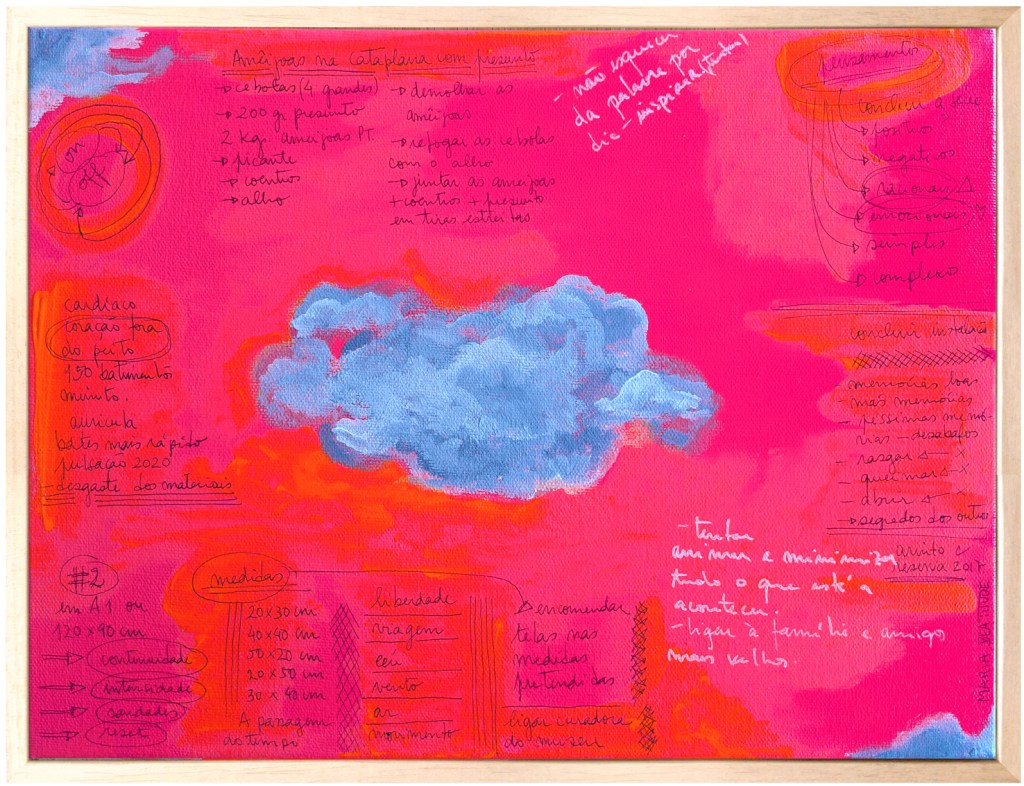 Amêijoas na Cataplana com presunto
→ cebolas (4 grandes)
→ 200 gr presunto
2 kg. ameijoas PT.
→ picante
→ coentros
→ alho
→ demolhar as
ameijoas
→ refogar as cebolas
com o alho
→ juntar as ameijoas
+ coentros + presunto
em tiras
- não esquecer
da palavra por
dia - inspirar
pensamentos
concluir a série
→ positivos ?
→ negativos
→ racionais
→ emocionais ?
→ simples
→ complexo
on
off
cardíaco
coração fora
do peito
150 batimentos
minuto.
aurícula
bates mais rápido
pulsação 2020
- desgaste dos materiais
concluir instalação
- memórias boas
- más memórias
- péssimas memó-
rias - desabafos
- rasgar
- queimar
- abrir
→ segredos dos outros
- tentar
animar e minimizar
tudo o que está a
acontecer.
- ligar à família e amigos
mais velhos.
reserva 2017
#2
em A1 ou
120 x 90 cm
→ continuidade
→ intensidade
→ saudades
→ reset
medidas
20 x 30 cm
40 x 40 cm
50 x 20 cm
20 x 50 cm
30 x 40 cm
A passagem
do tempo
liberdade
viagem
céu
vento
ar
movimento
encomendar
telas nas
medidas
pretendidas
ligar curadora
do museu
MARIA BEATITUDE